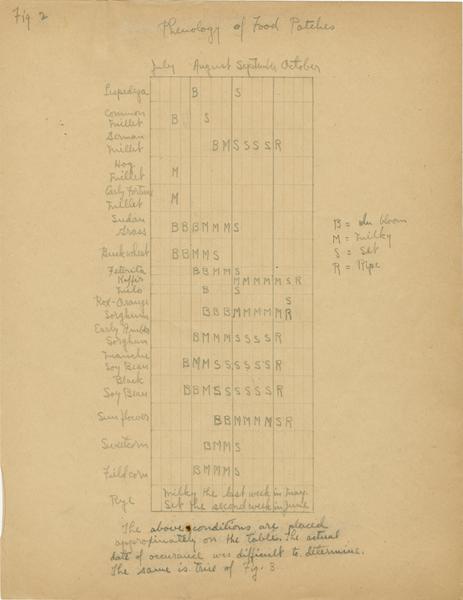 Fig 2
Phenology of Food Patches
July August September October
Lespedeza B S
Common
Millet B S
German
Millet B M S S S S R
Hog
Millet M
Early Fortune
Millet M
Sudan
Grass B B B M M M S
Buckwheat B B M M S
Feterita B B M M S
Kaffir M M M M M S R
Milo B S
Rox-Orange S
Sorghum B B B M M M M M R
Early
Sorghum B M M M S S S S R
Soy Bean B M M S S S S S S R
Black
Soy Bean B B M S S S S S S R
Sunflower B B M M M M S R
Sweetcorn B M M S
Fieldcorn B M M M S
Rye Milky the last week in May.
Set the second week in June
B = In bloom
M = Milky
S = Set
R = Ripe
The above conditions are placed
approximately on the table. The actual
date of occurance was difficult to determine.
The same is true of Fig. 3.